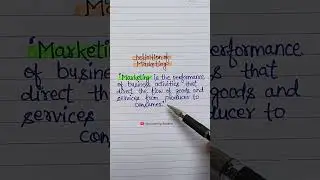 Definition of
Marketing?
"Marketing is the performance
of business activities that
direct the flow of goods and
services from producer to
consumer."
"Marketing
of busines
direct the
services
performance
s that
goods and
ducer to